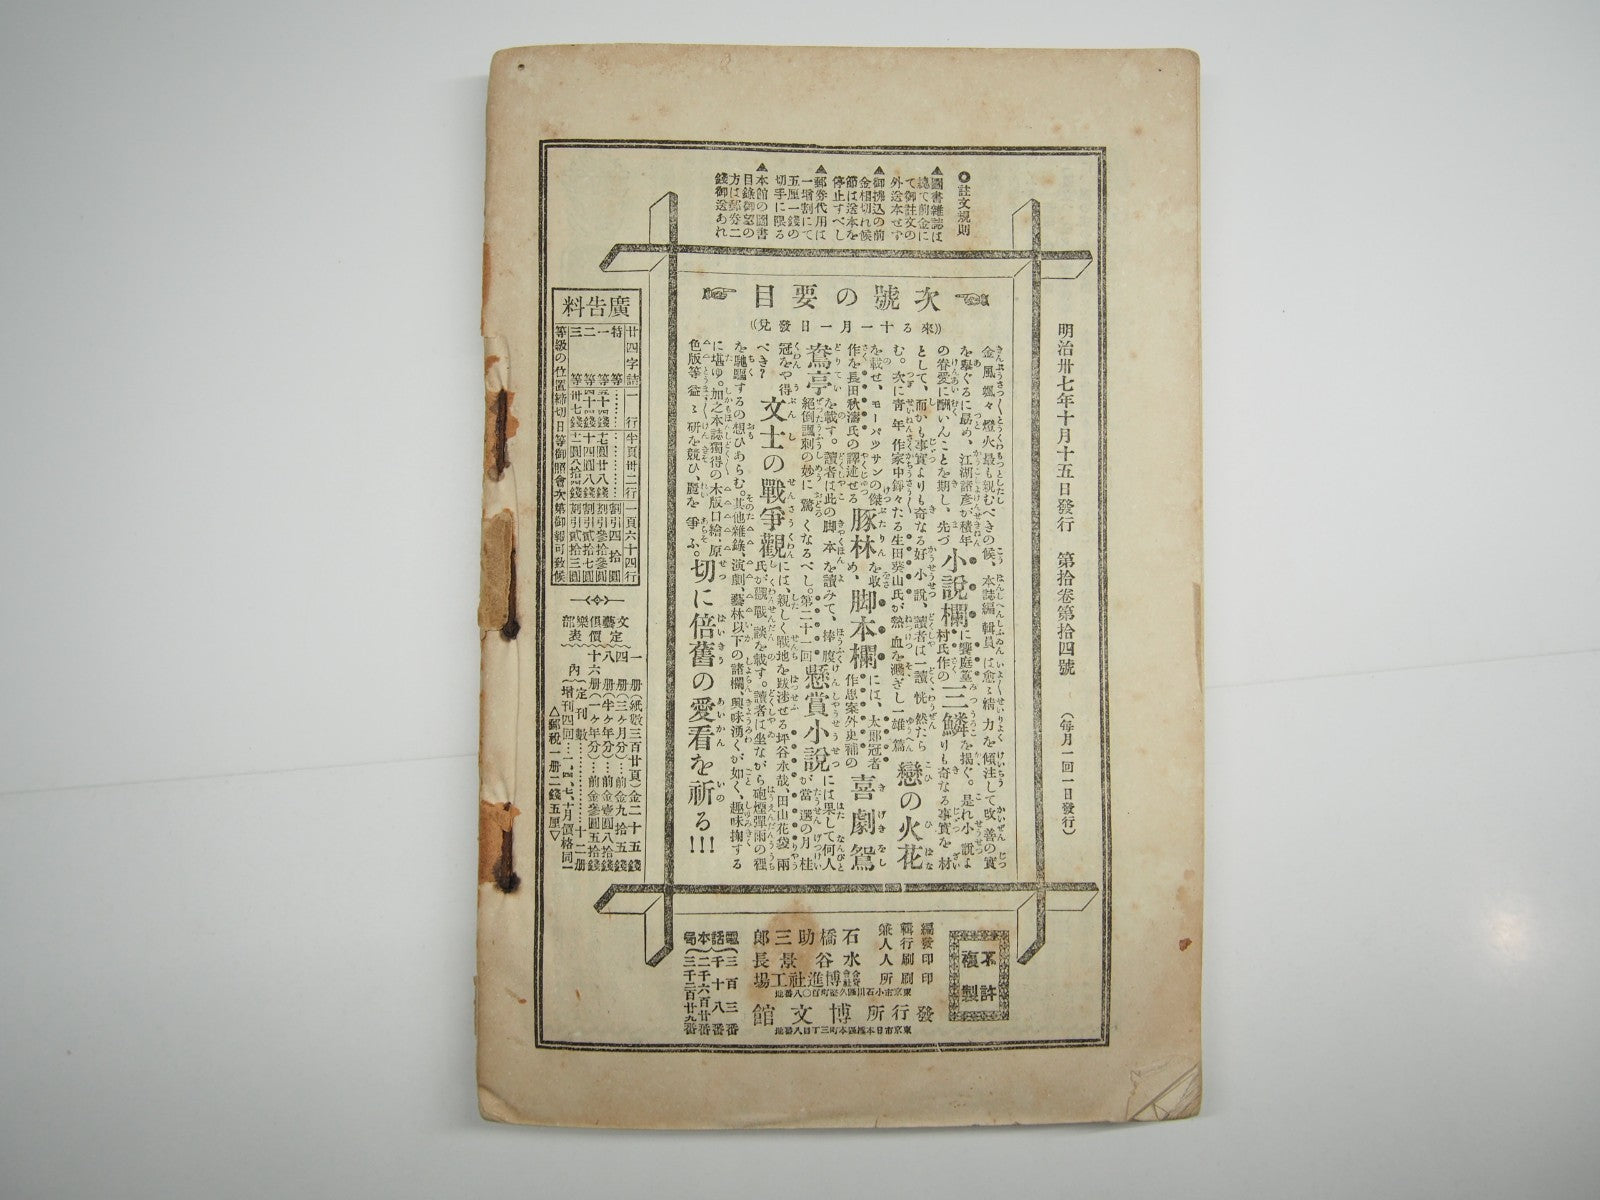 明治卅七年十月十五日發行　第拾卷第拾四號　（每月一回一日發行）
◎註文規則
▲圖書雜誌は
總て前金に
て御註文の
外送本せず
▲御拂込の前
金相切れ候
節は送本を
停止すべし
▲郵券代用は
一增割にて
五厘一錢の
切手に限る
▲本館の圖書
目錄御望の
方は郵券二
錢御送あれ
次號の要目
（（來る十一月一日發兌））
金風颯々燈火最も親むべきの候、本誌編輯員は愈〻精力を傾注して改善の實
を擧ぐるに勗め、江湖諸彥が積年
の眷愛に酬いんことを期し、先づ小說欄に饗庭篁村氏作の三鱗を揭ぐ。是れ小說よりも奇なる事實を材
として、而かも事實よりも奇なる好小說、讀者は一讀恍然たら
む。次に靑年作家中錚々たる生田葵山氏が熱血を濺ぎし一雄篇戀の火花
を載せ、モーパッサンの傑
作を長田秋濤氏の譯述せる豚林を收め、脚本欄には、太郎冠者作思案外史補の喜劇鴛
鴦亭を載す。讀者は此の脚本を讀みて、捧腹
絕倒諷刺の妙に驚くなるべし。第二十一回懸賞小說には果して何人が當選の月桂
冠をや得
べき？文士の戰爭觀には、親しく戰地を跋涉せる坪谷水哉、田山花袋兩氏が觀戰談を載す。讀者は坐ながら砲煙彈雨の裡
を馳驅するの想ひあらむ。其他雜錄、演劇、藝林以下の諸欄、興味湧くが如く、趣味掬する
に堪ゆ。加之本誌獨得の木版口繪、原
色版等益〻硏を競ひ、麗を爭ふ。切に倍舊の愛看を祈る!!!
廣告料
廿四字詰一行
半頁卅二行
一頁六十四行
特等
一等
二等
三等
等級の位置締切日等御照會次第御報可致候
文藝俱樂部定價表
一册（紙數三百廿頁）金二十五錢
四册（三ケ月分）…前金九拾五錢
八册（半ケ年分）…前金壹圓八拾錢
十六册（一ケ年分）…前金參圓五拾錢
內
定刊數………十二册
增刊四回…一、四、七、十月價格同一
△郵稅一册二錢五厘▽
不許複製
編輯兼發行人　石橋助三郎
印刷人　水谷景長
印刷所　合資會社博進社工場
東京市小石川區久堅町百〇八番地
發行所　博文館
東京市日本橋區本町三丁目八番地
電話本局
三百三番
二千十八番
二千六百廿番
三千二百廿九番